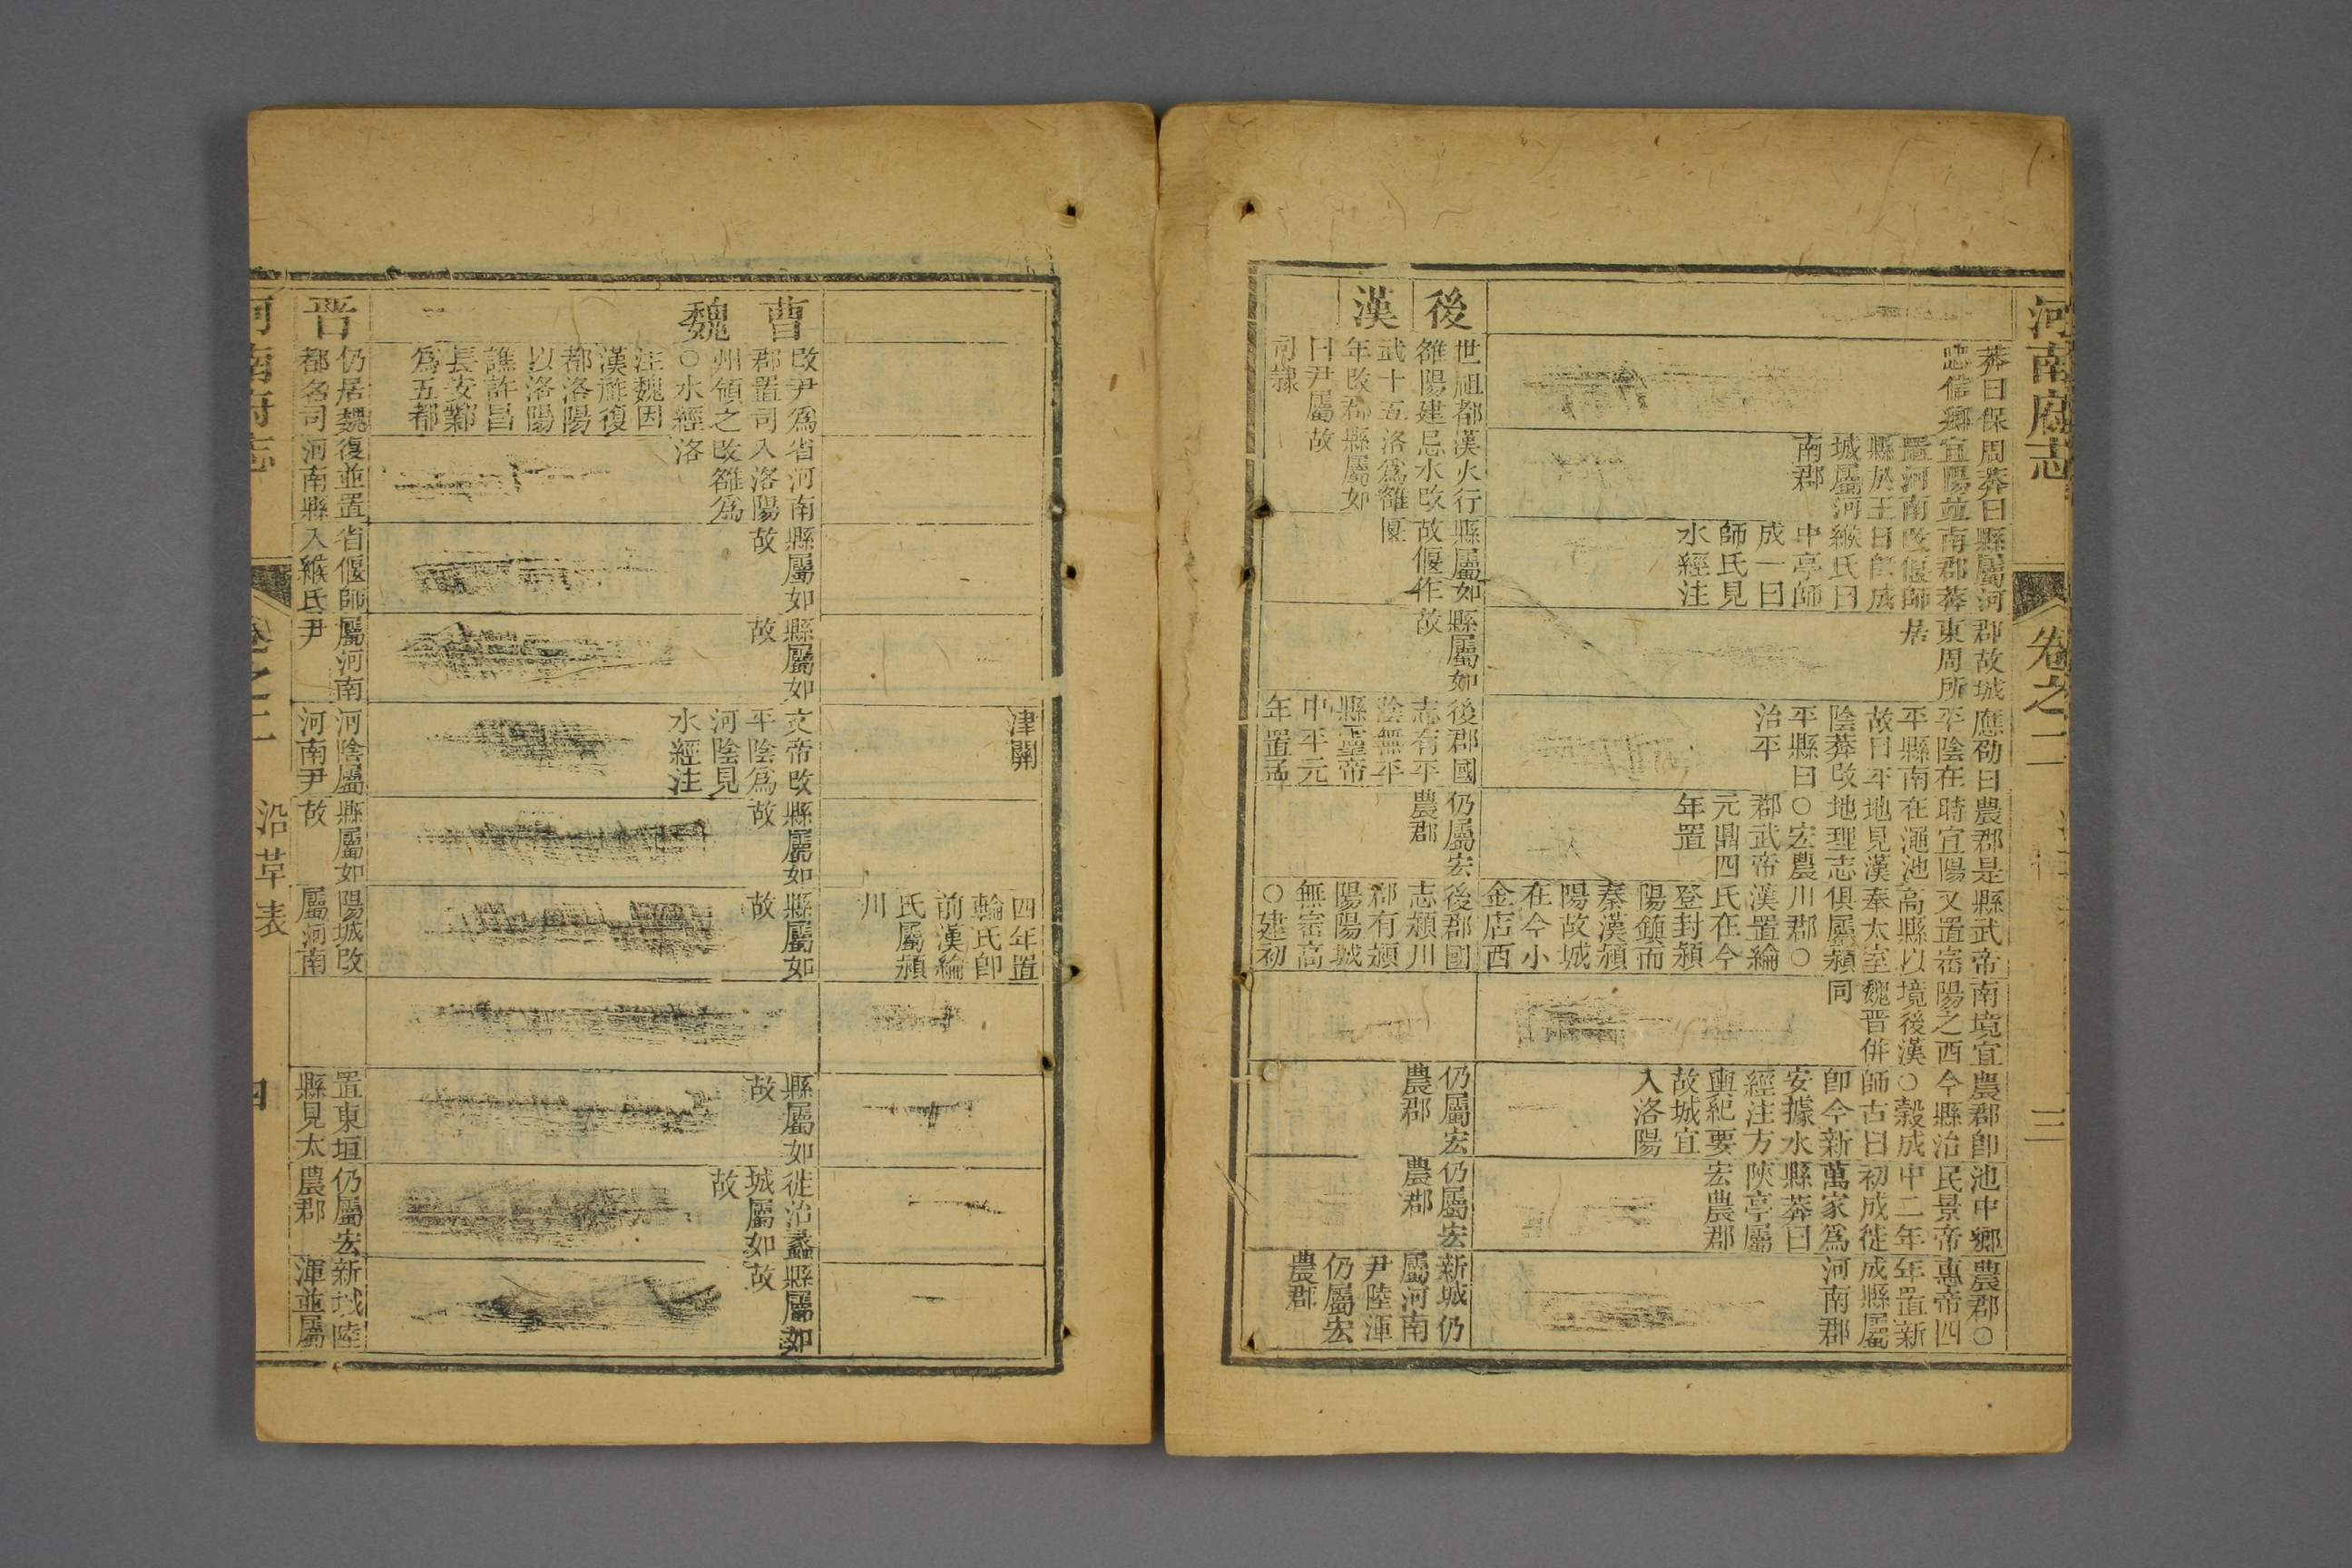 河南府志
卷之二
三
莽曰保
忠信鄉
周莽曰
宜陽並
置河南
縣於王
城屬河
南郡
縣屬河
南郡莽
改偃師
曰師成
緱氏曰
中亭師
成一曰
師氏見
水經注
郡故城
東周所
居
應劭曰
平陰在
平縣南
故曰平
陰莽改
平縣曰
治平
農郡是
時宜陽
在澠池
地見漢
地理志
○宏農
郡武帝
元鼎四
年置
縣武帝
又置崈
高縣以
奉太室
俱屬潁
川郡○
漢置綸
氏在今
登封潁
陽鎮而
秦漢潁
陽故城
在今小
金店西
南境宜
陽之西
境後漢
魏晉併
同
農郡卽
今縣治
○穀成
師古曰
卽今新
安據水
經注方
輿紀要
故城宜
入洛陽
池中鄉
民景帝
中二年
初成徙
萬家爲
縣莽曰
陝亭屬
宏農郡
農郡○
惠帝四
年置新
成縣屬
河南郡
後漢
世祖都
雒陽建
武十五
年改郡
曰尹屬
司隸
漢火行
忌水改
洛爲雒
縣屬如
故
縣屬如
故偃作
匽
縣屬如
故
後郡國
志有平
陰無平
縣靈帝
中平元
年置孟
仍屬宏
農郡
後郡國
志潁川
郡有潁
陽陽城
無崈高
○建初
仍屬宏
農郡
仍屬宏
農郡
新城仍
屬河南
尹陸渾
仍屬宏
農郡
津關
四年置
輪氏卽
前漢綸
氏屬潁
川
曹魏
改尹爲
郡置司
州領之
○水經
注魏因
漢祚復
都洛陽
以洛陽
譙許昌
長安鄴
爲五都
省河南
入洛陽
改雒爲
洛
縣屬如
故
縣屬如
故
文帝改
平陰爲
河陰見
水經注
縣屬如
故
縣屬如
故
縣屬如
故
徙治蠡
城屬如
故
縣屬如
故
晋
仍居魏
都名司
復並置
河南縣
省偃師
入緱氏
屬河南
尹
河陰屬
河南尹
縣屬如
故
陽城改
屬河南
置東垣
縣見太
仍屬宏
農郡
新城陸
渾並屬
河南府志
卷之二
沿革表
四